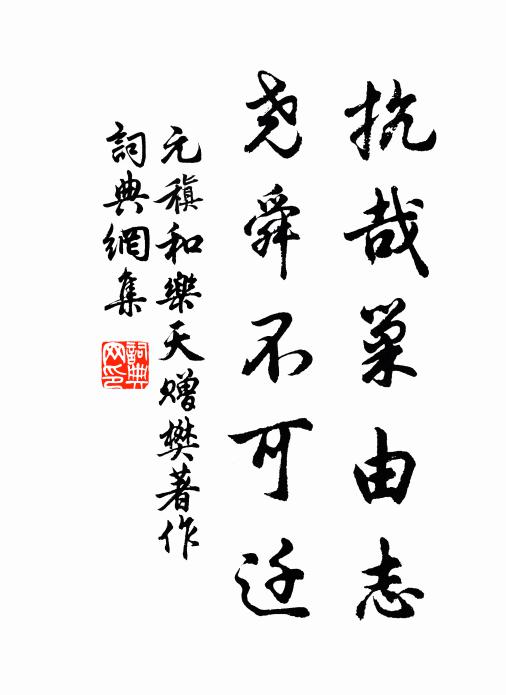 抗哉巢由志
尧舜不可迁
元稹和樂天赠樊著作
詞典網集
詞典网印